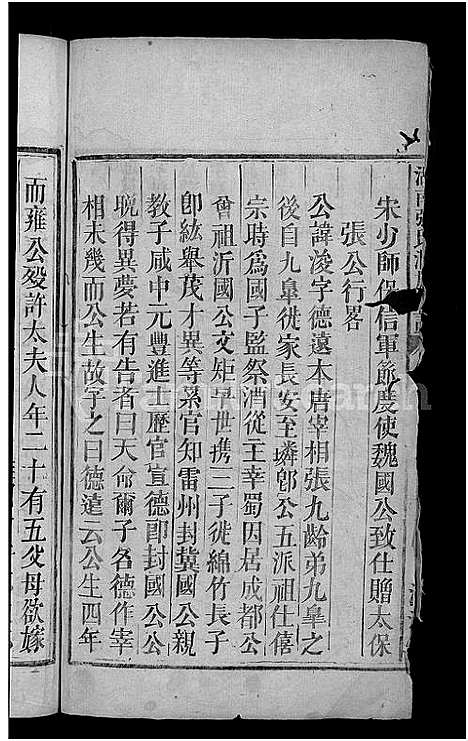 宋少師保信軍節度使魏國公致仕贈太保
張公行畧
公諱浚字德遠本唐宰相張九齡弟九臯之
後自九臯徙家長安至璘卽公五派祖仕僖
宗時爲國子監祭酒從主幸蜀因居成都公
曾祖沂國公文矩早世携三子徙綿竹長子
卽紘舉茂才異等累官知雷州封冀國公親
教子咸中元豐進士歷官宣德郎封國公公
晩得異夢若有告者曰天命爾子名德作宰
相未幾而公生故字之曰德遠云公生四年
而雍公歿許太夫人年二十有五父母欲嫁